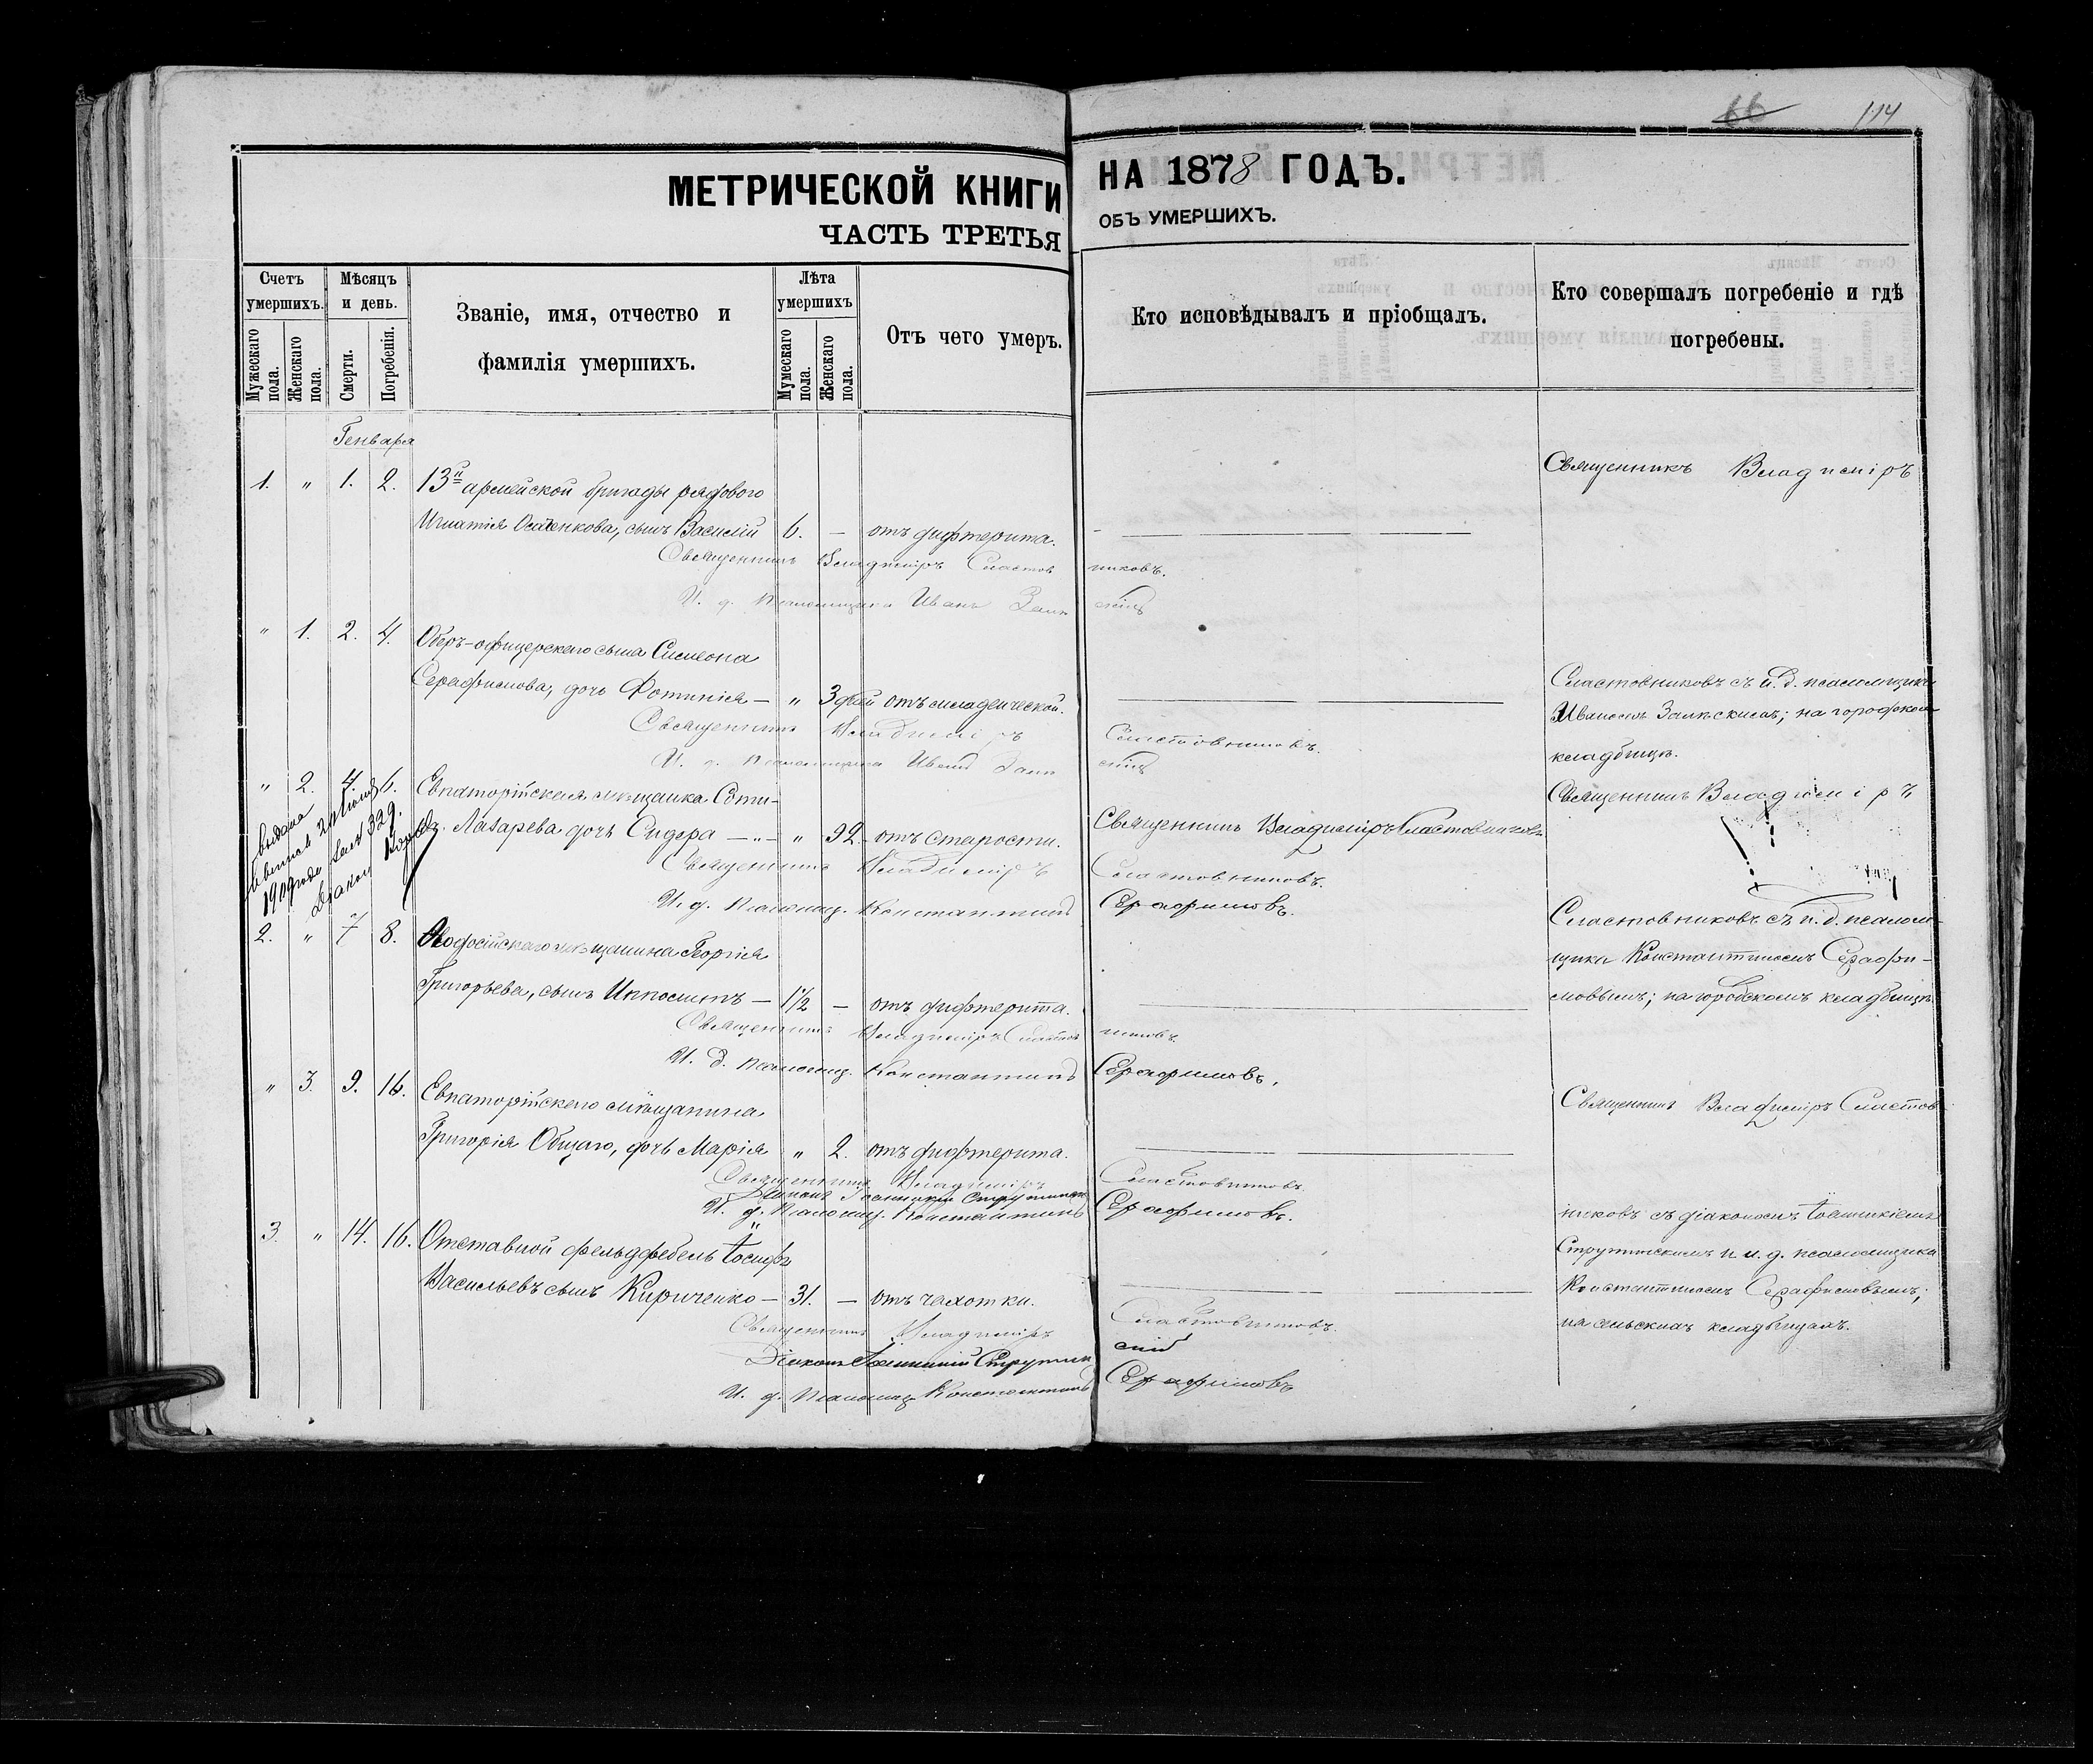 66 114
МЕТРИЧЕСКОЙ КНИГИ НА 1878 ГОДЪ.
ЧАСТЬ ТРЕТЬЯ ОБЪ УМЕРШИХЪ.
Счетъ умершихъ.
Мужескаго пола.
Женскаго пола.
Мѣсяцъ и день.
Смерти.
Погребенія.
Званіе, имя, отчество и
фамилія умершихъ.
Лѣта умершихъ
Мужескаго пола.
Женскаго пола.
Отъ чего умеръ.
Кто исповѣдывалъ и пріобщалъ.
Кто совершалъ погребеніе и гдѣ
погребены.
Генваря
1. " 1. 2. 13й армейской бригады рядового
Игнатія Осаченкова, сынъ Василій 6. — отъ дифтерита. —
Священникъ Владиміръ
Священникъ Владиміръ Сластовниковъ.
И. д. Псаломщика Иванъ
" 1. 2. 4. Оберъ-офицерскаго сына Симеона
Серафимова, дочь Фотинія — " 3 дней отъ младенческой. —
Сластовниковъ съ и. д. псаломщика
Иваномъ ; на городском
кладбищѣ.
Священникъ Владиміръ Сластовниковъ.
И. д. Псаломщика Иванъ
" 2. 4. 6. Евпаторійская мѣщанка
Лазарева дочь Сидера — " — " 92. отъ старости. Священникъ Владиміръ Сластовниковъ
Священникъ Владиміръ
выдана
1909 года за № 329.
Священникъ Владиміръ Сластовниковъ.
И. д. Псаломщ. Константинъ Серафимовъ.
2. " 7 8. Ѳеодосійскаго мѣщанина Георгія
Григорьева, сынъ Ипполитъ — 1½ — отъ дифтерита. —
Сластовниковъ съ и. д. псалом-
щика Константиномъ Серафи-
мовымъ; на городскомъ кладбищѣ.
Священникъ Владиміръ Сластовниковъ.
И. д. Псаломщ. Константинъ Серафимовъ.
" 3. 9. 16. Евпаторійскаго мѣщанина
Григорія Общаго, дочь Марія " 2. отъ дифтерита. —
Священникъ Владиміръ Сластов-
Священникъ Владиміръ Сластовниковъ
И. д. Псаломщ. Константинъ Серафимовъ.
3. " 14. 16. Отставной фельдфебель Іосифъ
Васильевъ сынъ Кириченко — 31. — отъ чахотки. —
никовъ съ діакономъ Іоанникіемъ
Струтинскимъ и и. д. псаломщика
Константиномъ Серафимовымъ;
на сельскихъ кладбищахъ.
Священникъ Владиміръ Сластовниковъ.
Діаконъ Іоанникій Струтинскій
И. д. Псаломщ. Константинъ Серафимовъ